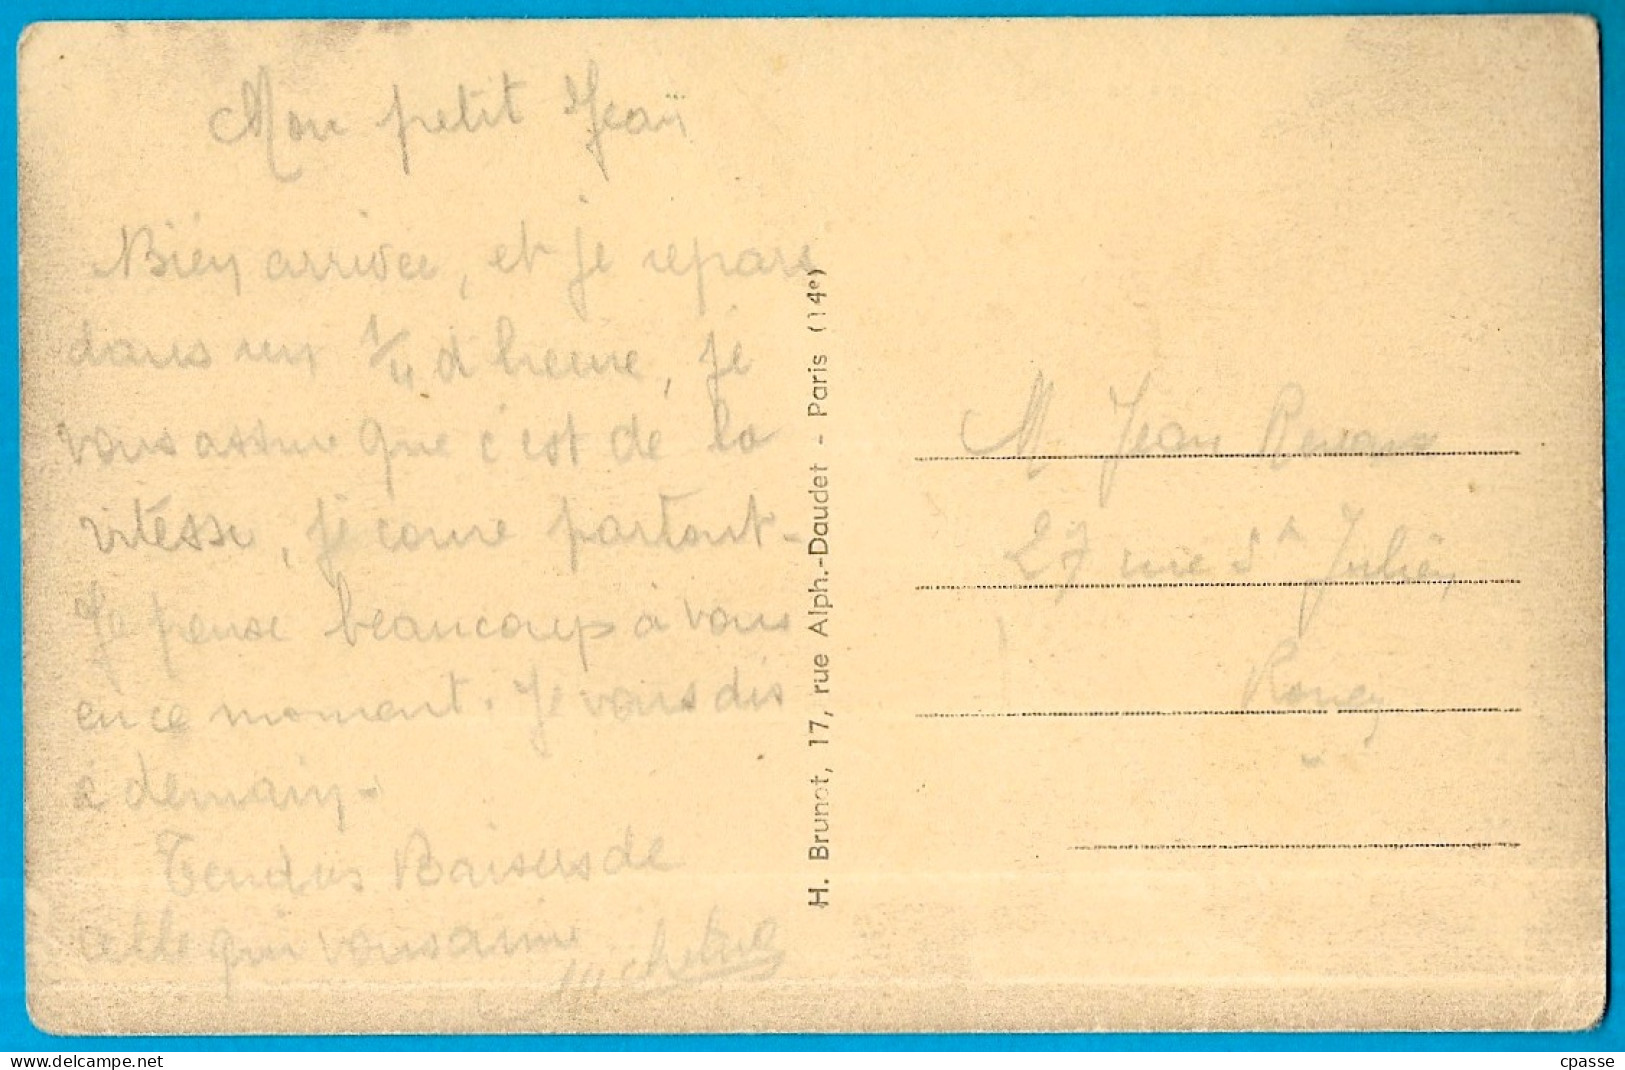 Mon petit Jean
Bien arrivée, et je repars
dans un 1/4 d heure, je
vous assure que c'est de la
vitesse, je coure partout-
Je pense beaucoup à vous
en ce moment. Je vous dis
à demain-
Tendres Baisers de
celle qui vous aime
H. Brunot, 17, rue Alph.-Daudet - Paris (14e)
M Jean
27 rue St Julien
Rouen
www.delcampe.net
cpasse